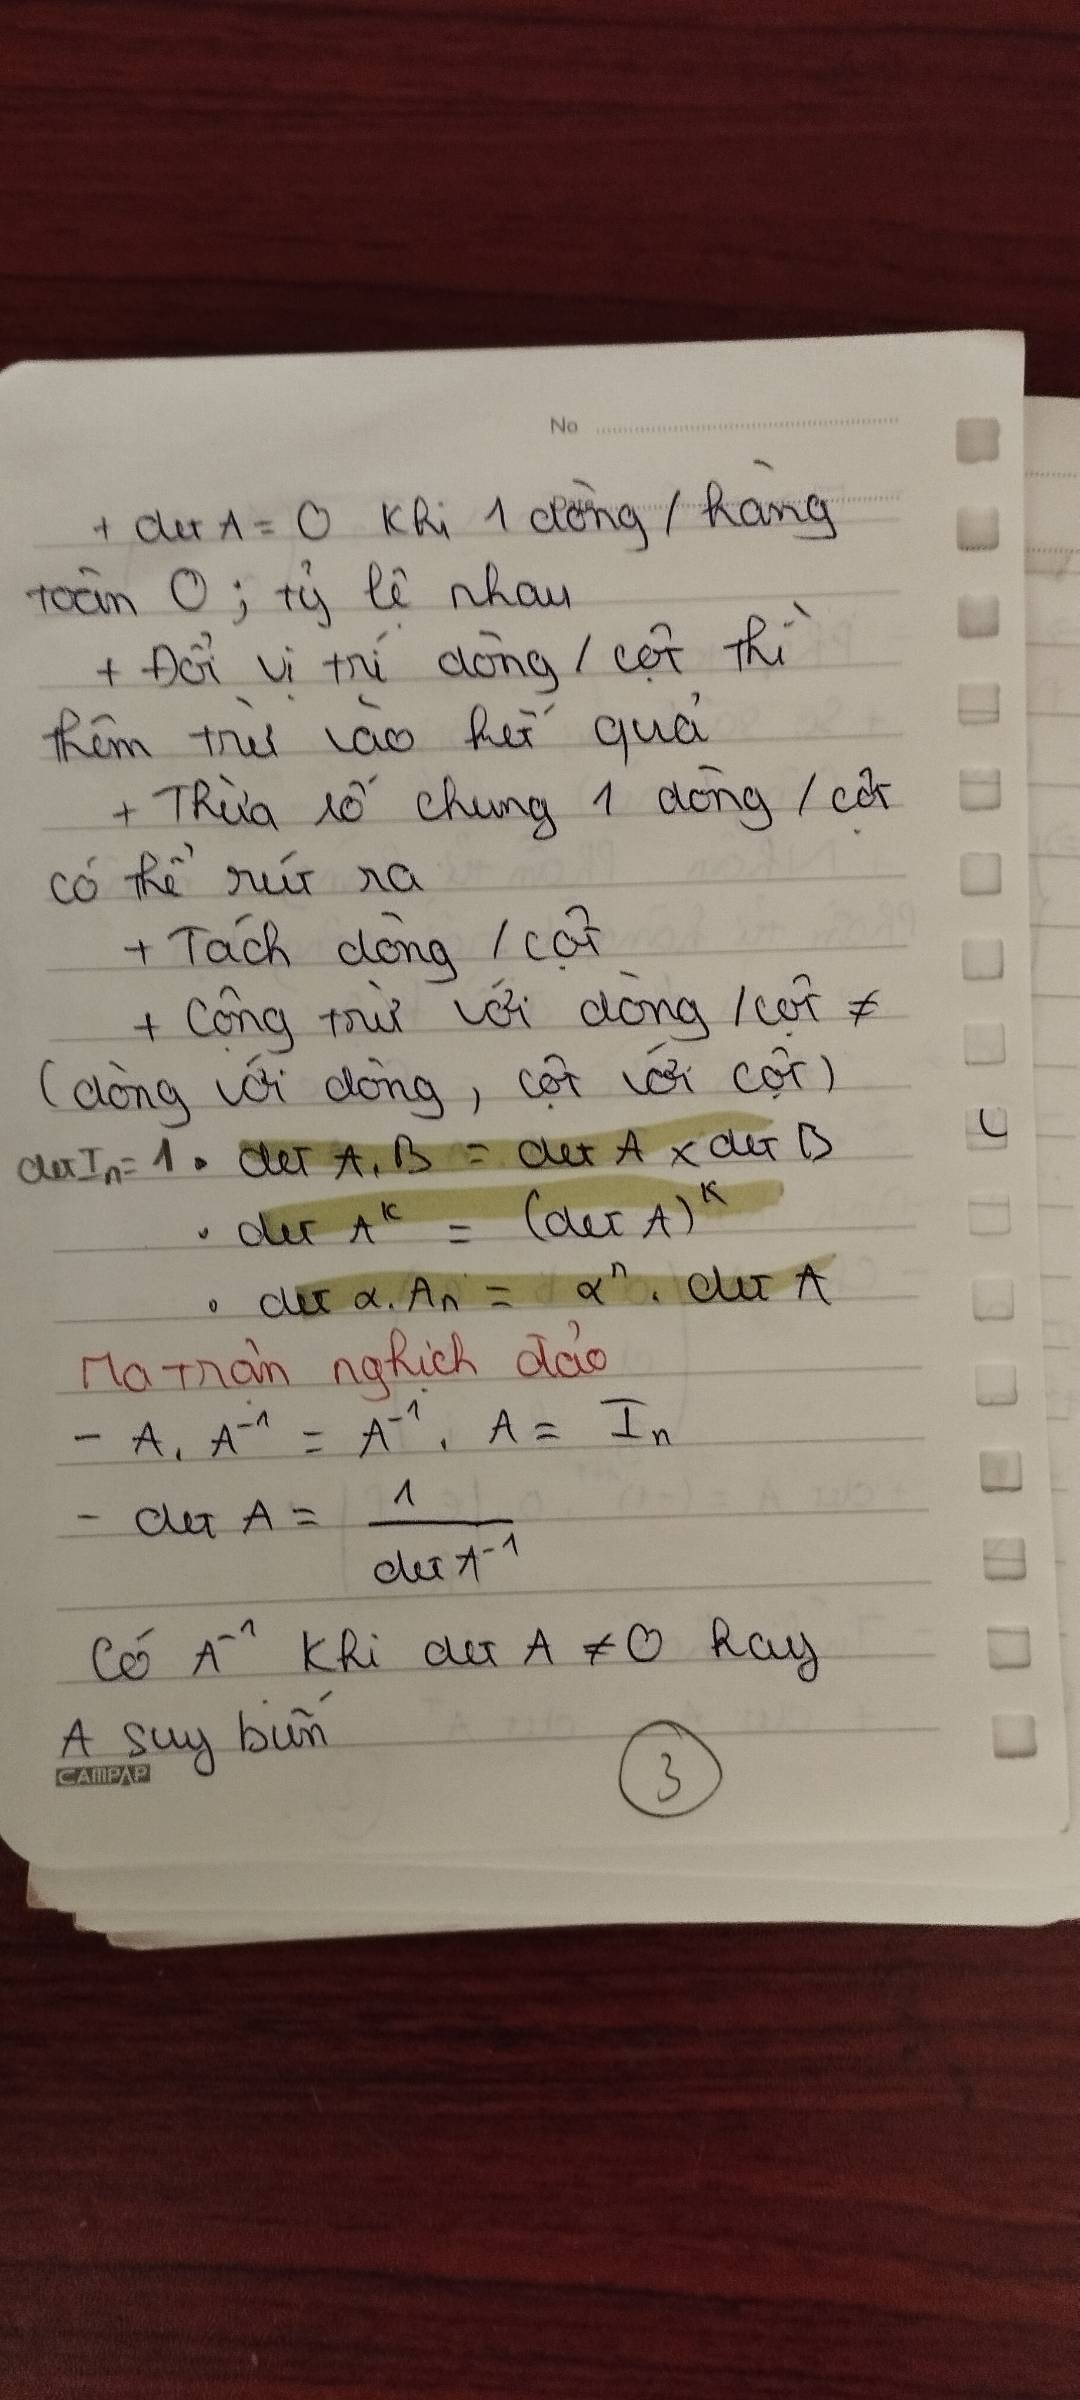 No
+ det A = 0 khi 1 dòng / hàng
toàn 0 ; tỷ lệ nhau
+ Đổi vị trí dòng / cột thì
thêm trừ vào kết quả
+ Thừa số chung 1 dòng / cột
có thể rút ra
+ Tách dòng / cột
+ Cộng trừ với dòng / cột ≠
(dòng với dòng, cột với cột)
det Iₙ = 1 • det A.B = det A × det B
• det Aᵏ = (det A)ᵏ
• det α.Aₙ = αⁿ . det A
Ma trận nghịch đảo
- A. A⁻¹ = A⁻¹. A = Iₙ
- det A = 1 / det A⁻¹
Có A⁻¹ khi det A ≠ 0 hay
A suy biến
3
CAMPAP